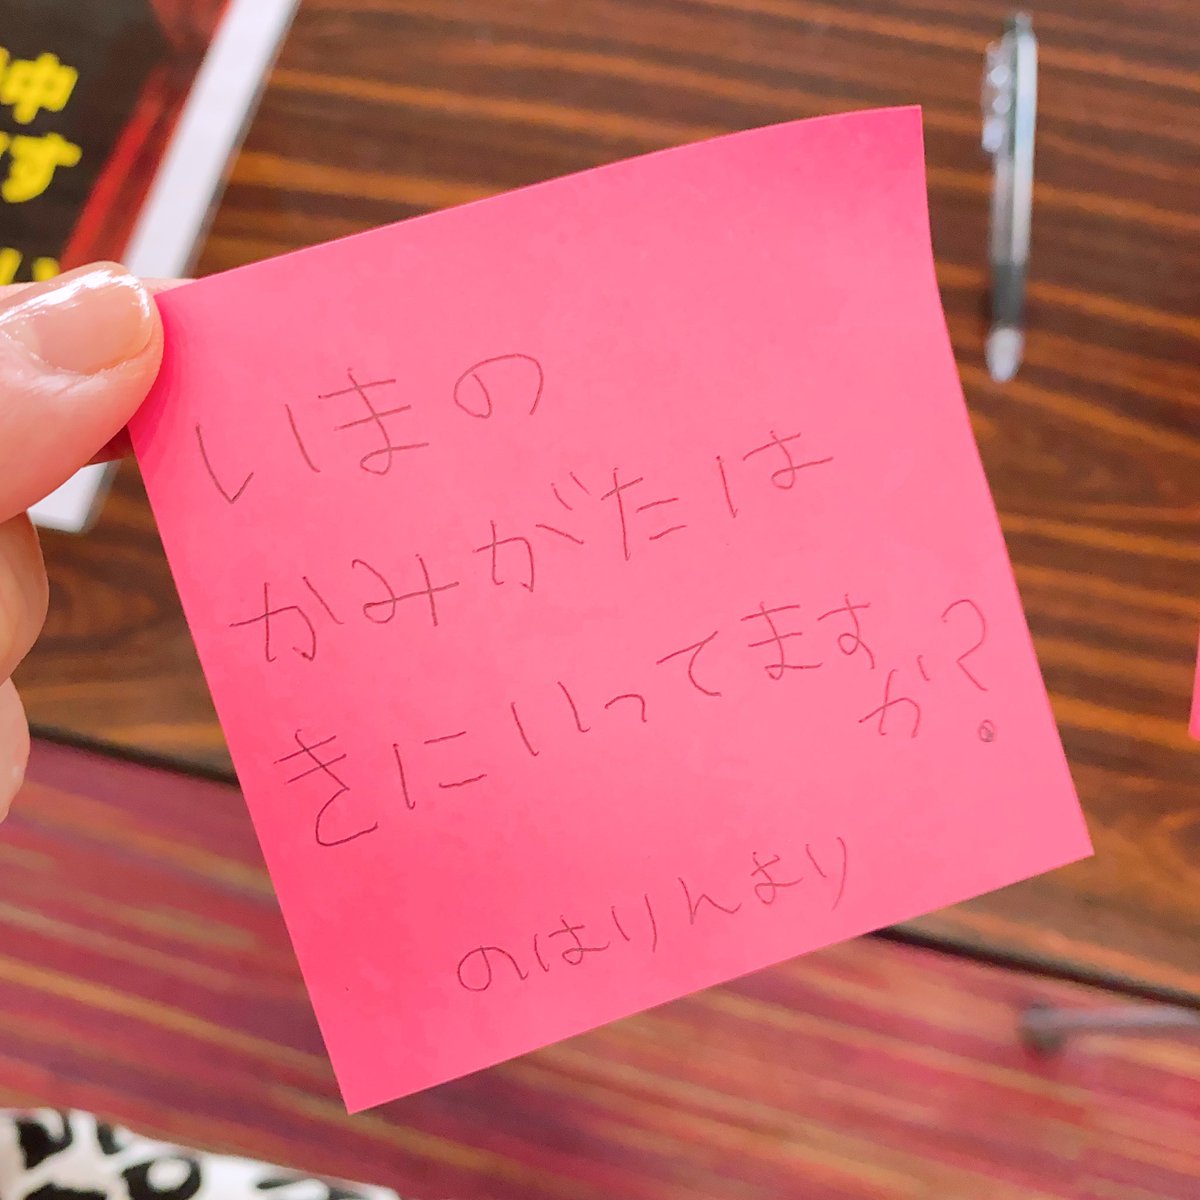 中
す
いまの
かみがたは
きにいってます
か?
のはりんより